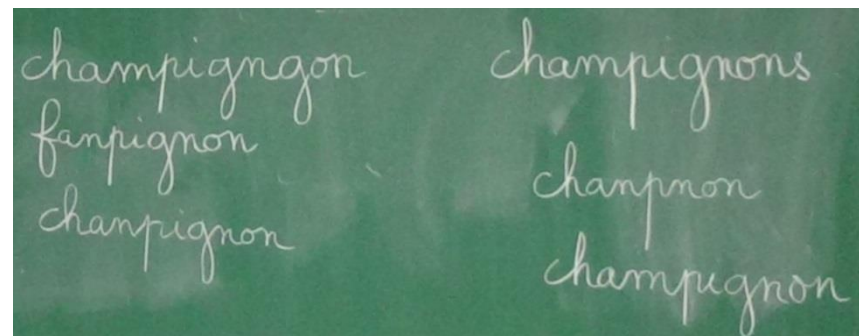 champigngon
fanpignon
chanpignon
champignons
chanpnon
champignon